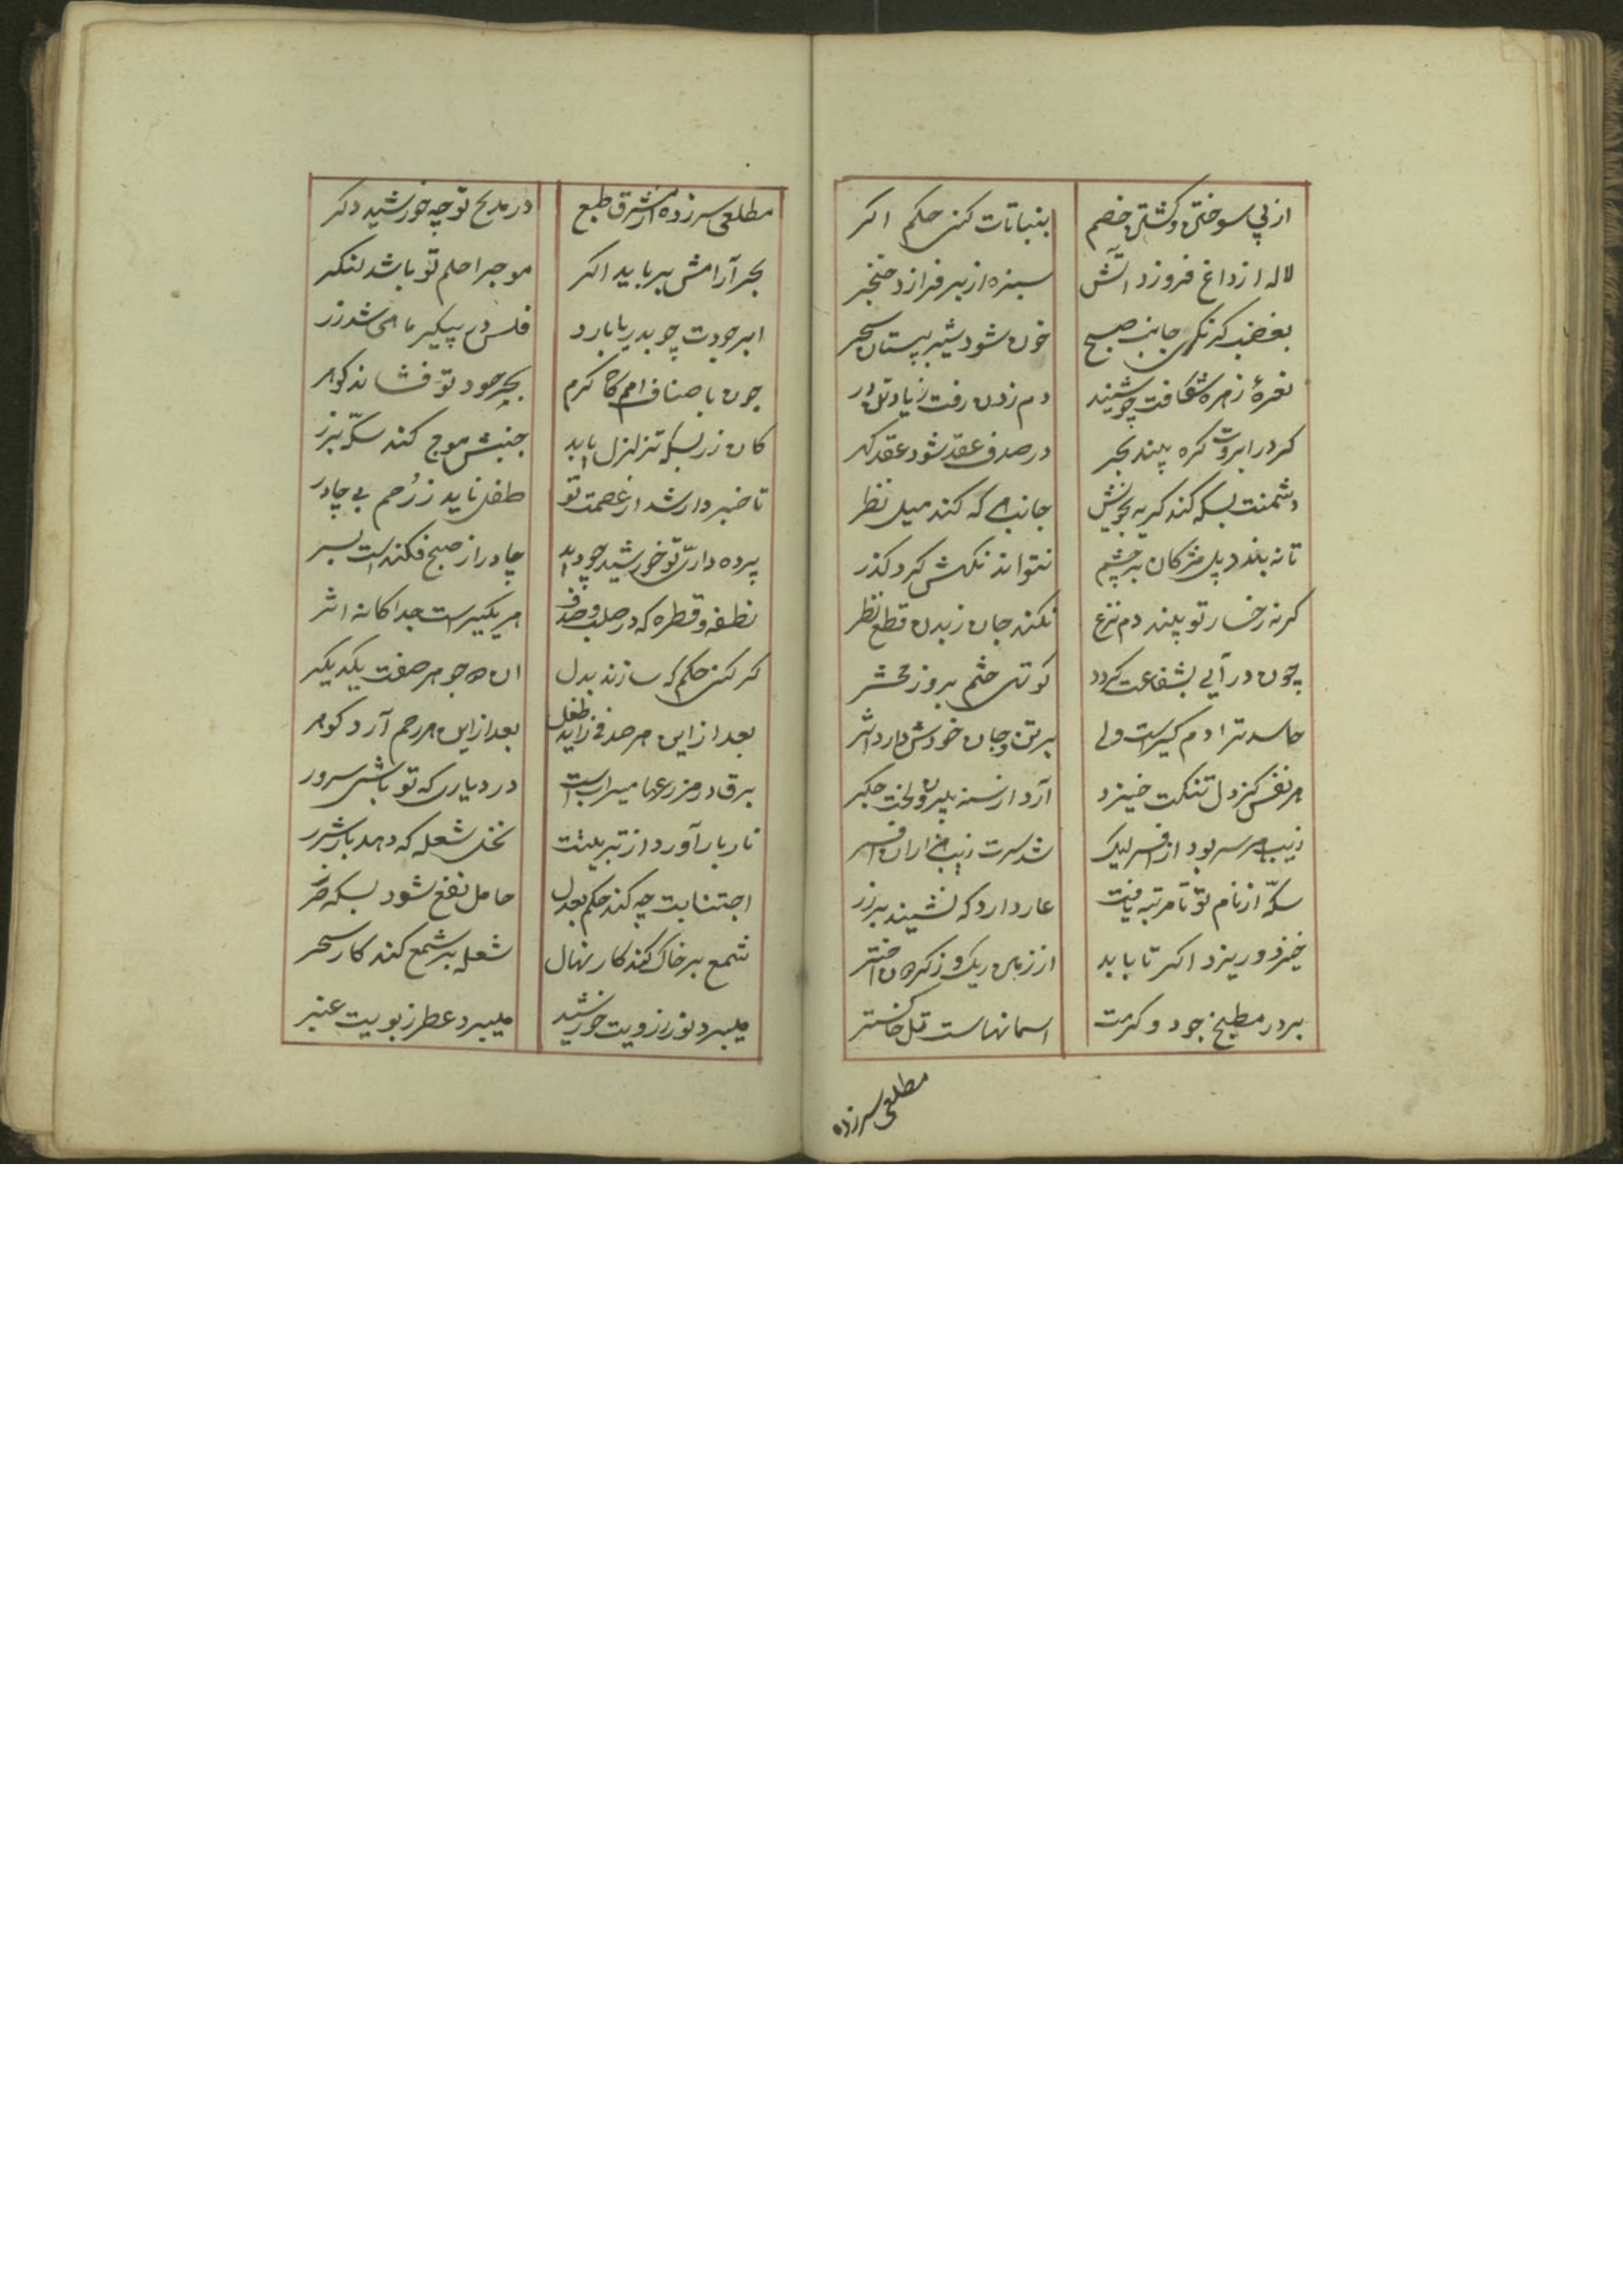 از پی سوختن و کشتن خصم
بنباتات کنی حکم اگر
لاله از داغ فروزد آتش
سبزه از بر فرازد خنجر
بغضب گر نگری جانب صبح
خون شود شیر بپستان سحر
نعرهٔ زهره شکافت چو شنید
دم زدن رفت ز یاد
گر در ابروت گره بیند بحر
در صدف عقد نشود عقد گهر
دشمنت بسکه کند گریه بخویش
جانبی که کند میل نظر
تا نه بندد پل مژگان بر چشم
نتواند نگهش کرد گذر
گر نه رخسار تو بیند دم نزع
نکند جان ز بدن قطع نظر
چون در آیی بشفاعت گردد
کوتهی خشم بروز محشر
حاسد ترا دم گیراست ولی
بر تن و جان خودش دارد اثر
هر نفس کز دل تنگت خیزد
آرد از سینه برون لخت جگر
زیب هر سر بود از افسر لیک
شد سرت زیب
سکه از نام تو تا مرتبه یافت
عار دارد که نشیند بر زر
خیزد و ریزد اگر تا باید
از زمین ریک و ز گردون اختر
بر در مطبخ جود و کرمت
اسمانهاست تل خاکستر
مطلعی سرزده
مطلعی سرزده از مشرق طبع
در مدیح تو چه خورشید دگر
بحر آرامش برباید اگر
موجرا حلم تو باشد لنگر
ابر جودت چو بدریا بارد
فلس در پیکر ماهی شد زر
چون باصناف امم گاه کرم
بحر جود تو فشاند گوهر
کان زر بسکه تزلزل یابد
جنبش موج کند سکه بزر
تا خبردار شد از عصمت تو
طفل ناید ز رحم بی چادر
پرده داری تو خورشید چو دید
چادر از صبح فکندست بسر
نطفه و قطره که در صلب و صدف
هر یکیراست جداگانه اثر
گر کنی حکم که سازند بدل
ان دو جوهر صفت یکدیگر
بعد ازاین هر صدفی زاید طفل
بعد ازاین هر رحم آرد گوهر
برق در مزرعها میرابست
در دیاری که تو باشی سرور
نار بار آورد از تربیتت
نخل شعله که دهد بار شرر
اجتنابت چه کند حکم بعدل
حامل نفع شود بسکه ضرر
شمع بر خاک کند کار نهال
شعله بر شمع کند کار سحر
میبرد نور ز رویت خورشید
میبرد عطر ز بویت عنبر